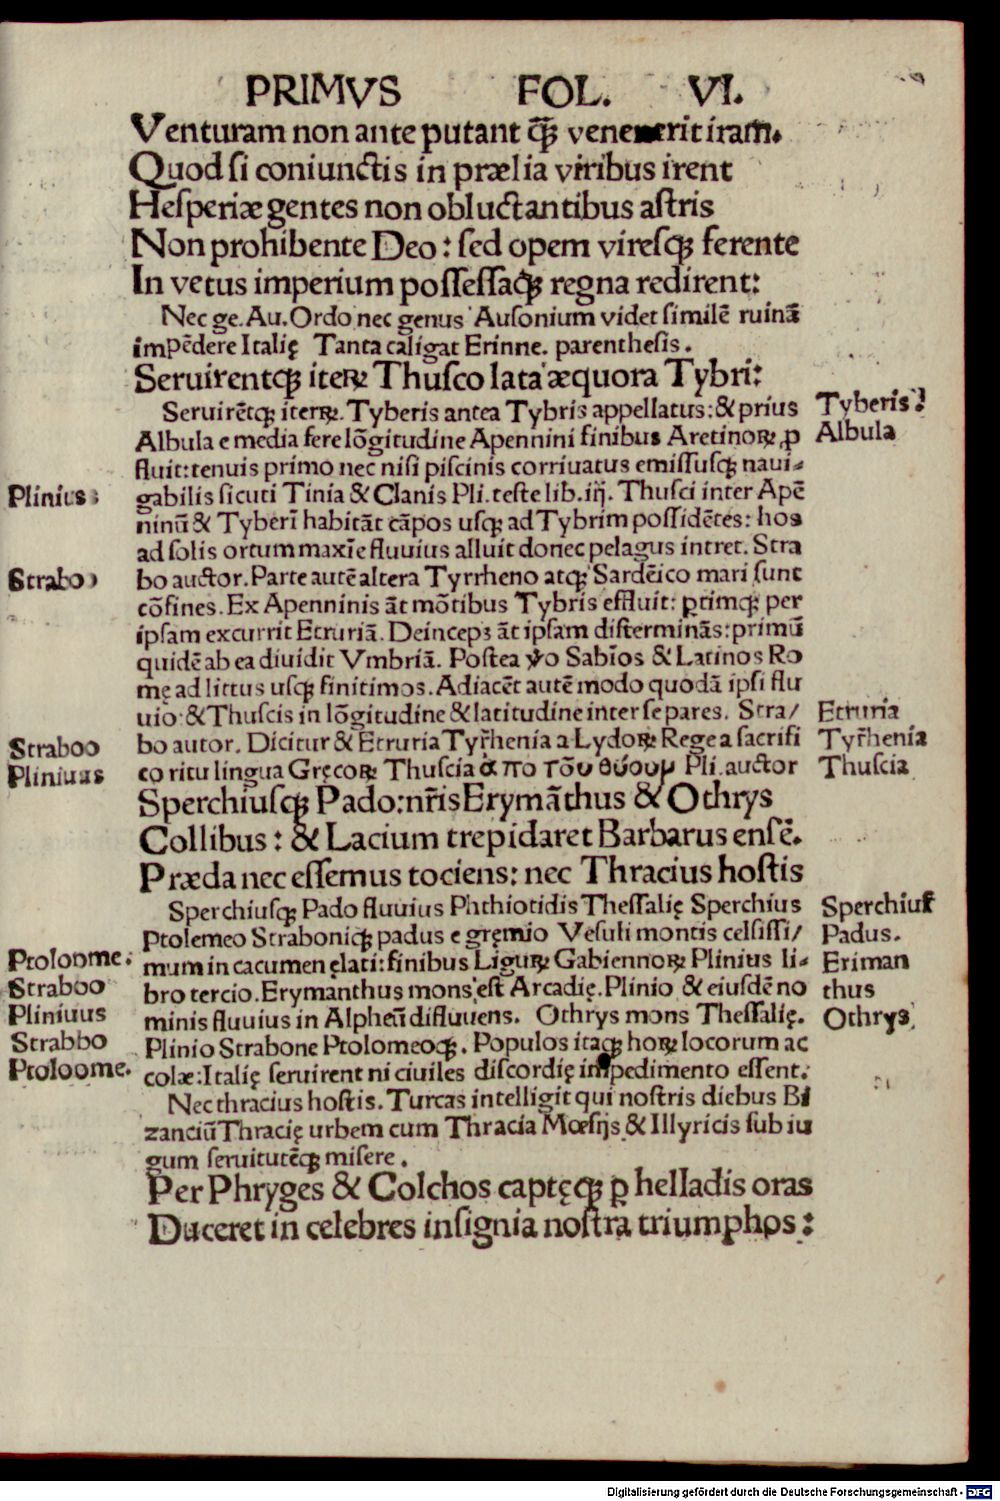 PRIMVS FOL. VI.
Venturam non ante putant q̃ꝫ venerit iram.
Quod ſi coniunctis in prælia viribus irent
Heſperiæ gentes non obluctantibus aſtris
Non prohibente Deo: ſed opem vireſqꝫ ferente
In vetus imperium poſſeſſaqꝫ regna redirent:
Nec ge. Au. Ordo nec genus Auſonium videt ſimilē ruinā
impēdere Italię Tanta caligat Erinne. parentheſis.
Seruirentqꝫ iterꝝ Thuſco lata æquora Tybri:
Seruirētqꝫ iterꝝ. Tyberis antea Tybris appellatus: & prius
Albula e media fere lōgitudine Apennini finibus Aretinoꝝ ꝓ
fluit: tenuis primo nec niſi piſcinis corriuatus emiſſuſqꝫ naui-
gabilis ſicuti Tinia & Clanis Pli. teſte lib. iij. Thuſci inter Apē
ninū & Tyberī habitāt cāpos uſqꝫ ad Tybrim poſſidētes: hos
ad ſolis ortum maxīe fluuius alluit donec pelagus intret. Stra
bo auctor. Parte autē altera Tyrrheno atqꝫ Sardēico mari ſunt
cōfines. Ex Apenninis āt mōtibus Tybris effluit: ꝑtimqꝫ per
ipſam excurrit Etruriā. Deincepꝫ āt ipſam diſterminās: primū
quidē ab ea diuidit Vmbriā. Poſtea ṽo Sabīos & Latinos Ro
mę ad littus uſqꝫ finitimos. Adiacēt autē modo quodā ipſi flu
uio: & Thuſcis in lōgitudine & latitudine inter ſe pares. Stra/
bo autor. Dicitur & Etruria Tyr̃henia a Lydoꝝ Rege a ſacrifi
co ritu lingua Gręcoꝝ Thuſcia ἀ πο τōυ θύουμ Pli. auctor
Sperchiuſqꝫ Pado: nr̃is Erymāthus & Othrys
Collibus: & Lacium trepidaret Barbarus enſē.
Præda nec eſſemus tociens: nec Thracius hoſtis
Sperchiuſqꝫ Pado fluuius Phthiotidis Theſſalię Sperchius
Ptolemeo Straboniqꝫ padus e gręmio Veſuli montis celſiſſi/
mum in cacumen ęlati: finibus Liguꝝ Gabiennoꝝ Plinius li-
bro tercio. Erymanthus mons eſt Arcadię. Plinio & eiuſdē no
minis fluuius in Alpheū difluuens. Othrys mons Theſſalię.
Plinio Strabone Ptolomeoqꝫ. Populos itaqꝫ hoꝝ locorum ac
colæ: Italię ſeruirent ni ciuiles diſcordię impedimento eſſent.
Nec thracius hoſtis. Turcas intelligit qui noſtris diebus Bi
zanciū Thracię urbem cum Thracia Mœſijs & Illyricis ſub iu
gum ſeruitutēqꝫ miſere.
Per Phryges & Colchos captęqꝫ ꝑ helladis oras
Duceret in celebres inſignia noſtra triumphos:
Plinius:
Strabo
Straboo
Pliniuus
Ptoloome.
Straboo
Pliniuus
Strabbo
Ptoloome.
Tyberis.
Albula
Etruria
Tyr̃henia
Thuſcia
Sperchiuſ
Padus.
Eriman
thus
Othrys
Digitalisierung gefördert durch die Deutsche Forschungsgemeinschaft - DFG